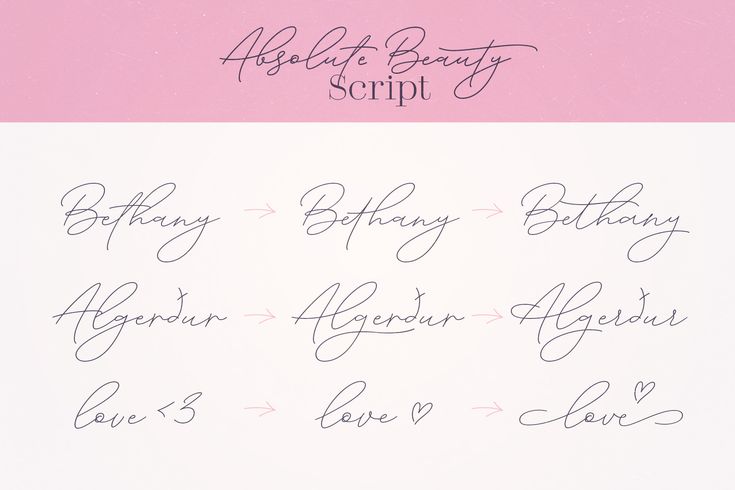 Absolute Beauty
Script
Bethany → Bethany → Bethany
Algerður → Algerður → Algerður
love <3 → love ♡ → love ♡